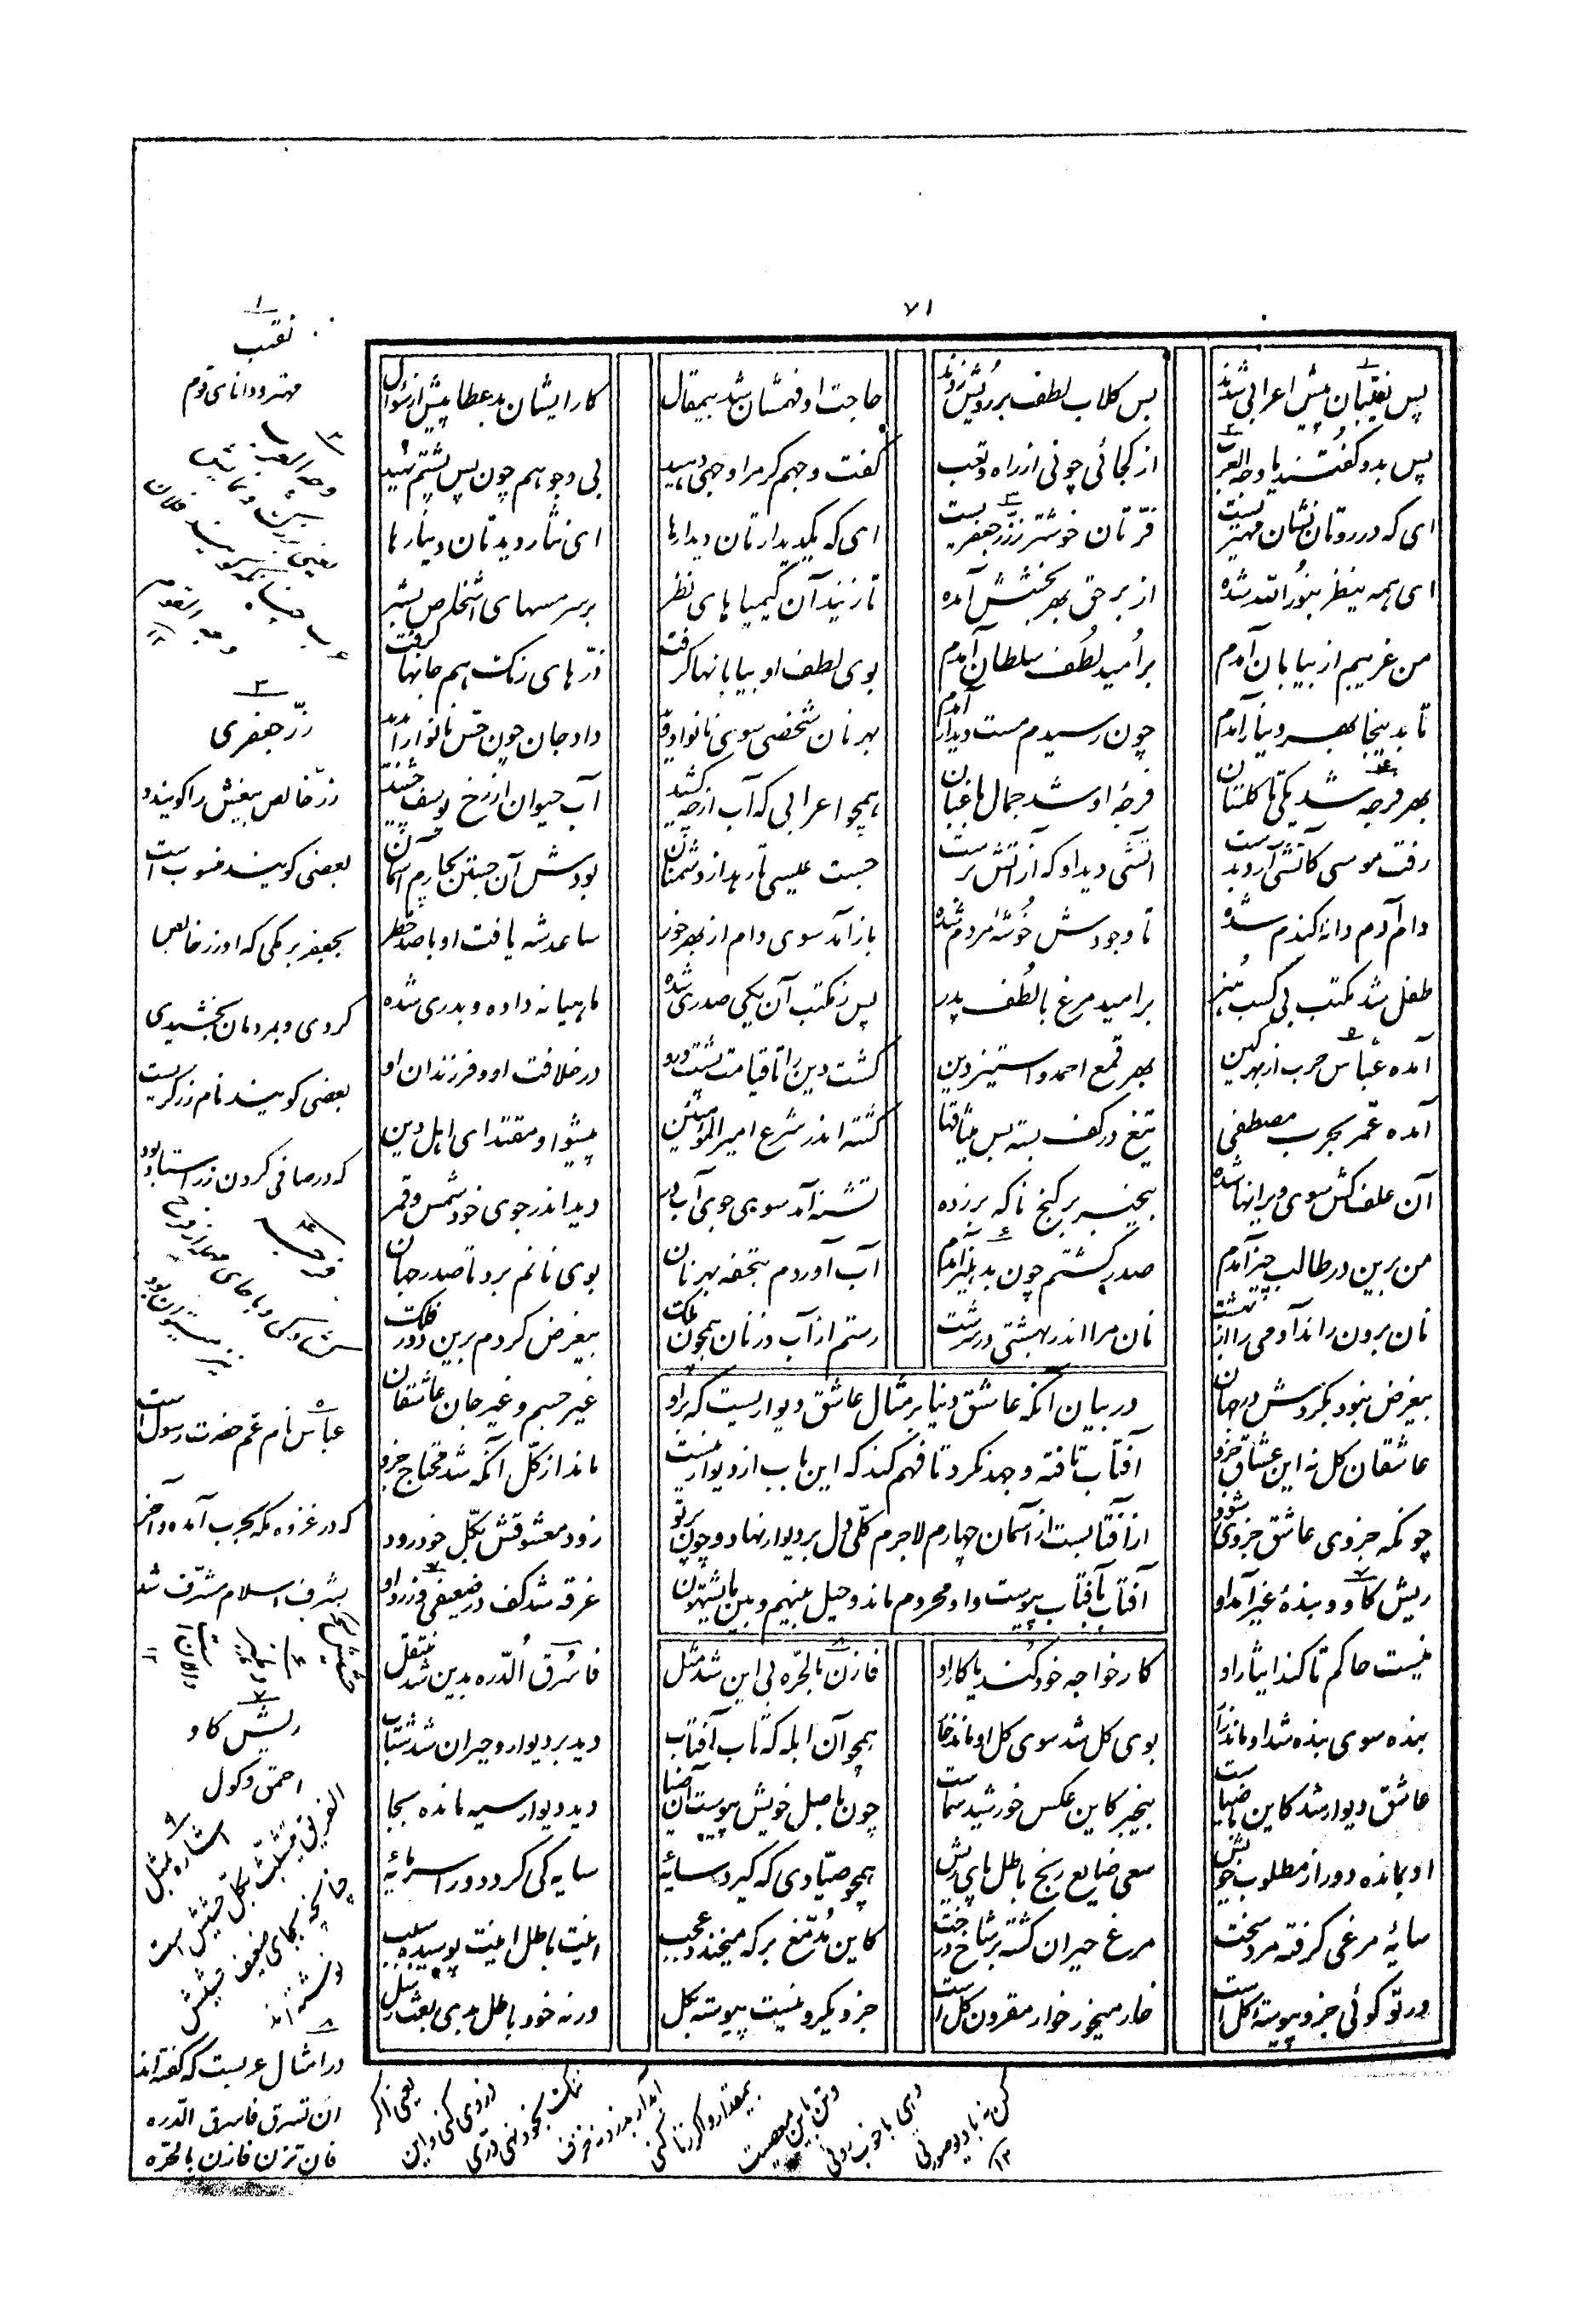 ۷۱
پس نقیبان پیش اعرابی شدند بس گلاب لطف بر رویش زدند حاجت او فهمشان شد بیمقال کار ایشان بد عطا پیش از سؤال
پس بدو گفتند یا وجه العرب از کجائی چونی از راه و تعب گفت وجهم گر مرا وجهی دهید بی وجوهم چون پس پشتم نهید
ای که در روتان نشان مهتریست فرّتان خوشتر ز زر جعفریست ای که یکدیدارتان دیدارها ای نثار دیدتان دینارها
ای همه ینظر بنور الله شده از بر حق بهر بخشش آمده تا زنید آن کیمیاهای نظر بر سر مسهای اشخاص بشر
من غریبم از بیابان آمدم بر امید لطف سلطان آمدم بوی لطف او بیابانها گرفت ذرّهای ریگ هم جانها گرفت
تا بدینجا بهر دینار آمدم چون رسیدم مست دیدار آمدم بهر نان شخصی سوی نانوا دوید داد جان چون حسن نانوا را بدید
بهر فرجه شد یکی تا گلستان فرجهٔ او شد جمال باغبان همچو اعرابی که آب از چه کشید آب حیوان از رخ یوسف چشید
رفت موسی کاتش آرد بدست آتشی دید او که از آتش برست جست عیسی تا رهد از دشمنان بودش آن جستن بچارم آسمان
دام آدم دانهٔ گندم شده تا وجودش خوشهٔ مردم شده باز آمد سوی دام از بهر خور ساعد شه یافت او با صد خطر
طفل شد مکتب پی کسب هنر بر امید مرغ با لطف پدر پس ز مکتب آن یکی صدری شده ماهیانه داده و بدری شده
آمده عبّاس حرب از بهر کین بهر قمع احمد و استیز دین گشت دین را تا قیامت پشت و رو در خلافت او و فرزندان او
آمده عمّر بحرب مصطفی تیغ در کف بسته بس میثاقها گشته اندر شرع امیر المؤمنین پیشوا و مقتدای اهل دین
آن علف کش سوی ویرانها شده بیخبر بر گنج ناگه بر زده تشنه آمد سوی جوی آب در دید اندر جوی خود شمس و قمر
من برین در طالب چیز آمدم صدر گشتم چون بدهلیز آمدم آب آوردم بتحفه بهر نان بوی نانم برد تا صدر جنان
نان برون راند آدمی را از بهشت نان مرا اندر بهشتی در سرشت رستم از آب و ز نان همچون ملک بیغرض گردم برین در چون فلک
بیغرض نبود بگردش در جهان غیر جسم و غیر جان عاشقان
در بیان آنکه عاشق دنیا بر مثال عاشق دیواریست که برو
عاشقان کل نه این عشّاق جزو ماند از کلّ آنکه شد محتاج جزو
آفتاب تافته و جهد نکرد تا فهم کند که این تاب از دیوار نیست
چونکه جزوی عاشق جزوی شود زود معشوقش بکلّ خود رود
از آفتابست از آسمان چهارم لاجرم کلّی دل بر دیوار نهاد و چون پرتو
ریش گاو و بندهٔ غیر آمد او غرقه شد کف در ضعیفی در زد او
آفتاب بآفتاب پیوست و او محروم ماند و حیل بینهم و بین ما یشتهون
نیست حاکم تا کند ایثار او کار خواجه خود کند یا کار او فازن بالحرّه پی این شد مثل فاسرق الدّره بدین شد منتقل
بنده سوی بنده شد او ماند زار بوی گل شد سوی گل او ماند خار همچو آن ابله که تاب آفتاب دید بر دیوار و حیران شد شتاب
عاشق دیوار شد کاین با ضیاست بیخبر کاین عکس خورشید سماست چون باصل خویش پیوست آن ضیا دید دیوار سیه مانده بجا
او بمانده دور از مطلوب خویش سعی ضایع رنج باطل پای ریش همچو صیّادی که گیرد سایهٔ سایه کی گردد ورا سرمایهٔ
سایهٔ مرغی گرفته مرد سخت مرغ حیران گشته بر شاخ درخت کاین مدمّغ بر که میخندد عجب اینت باطل اینت پوسیده سبب
ور تو گوئی جزو پیوستهٔ کل است خار میخور خار مقرون گل است جز و یکرو نیست پیوسته بکل ورنه خود باطل بدی بعث رسل
۱
نقیب
مهتر و دانای قوم
۳
زرّ جعفری
زرّ خالص بیغش را گویند و
بعضی گویند منسوب است
بجعفر برمکی که او زر خالص
کردی و بمردمان بخشیدی
بعضی گویند نام زرگریست
که در صافی کردن زر استاد بود
۵
عبّاس نام عم حضرت رسول است
که در غزوه مکه بحرب آمده و آخر
بشرف اسلام مشرّف شد
۷
ریش گاو
احمق و گول
۸
در امثال عربست که گفته اند
ان تسرق فاسرق الدّره
فان تزن فازن بالحرّه